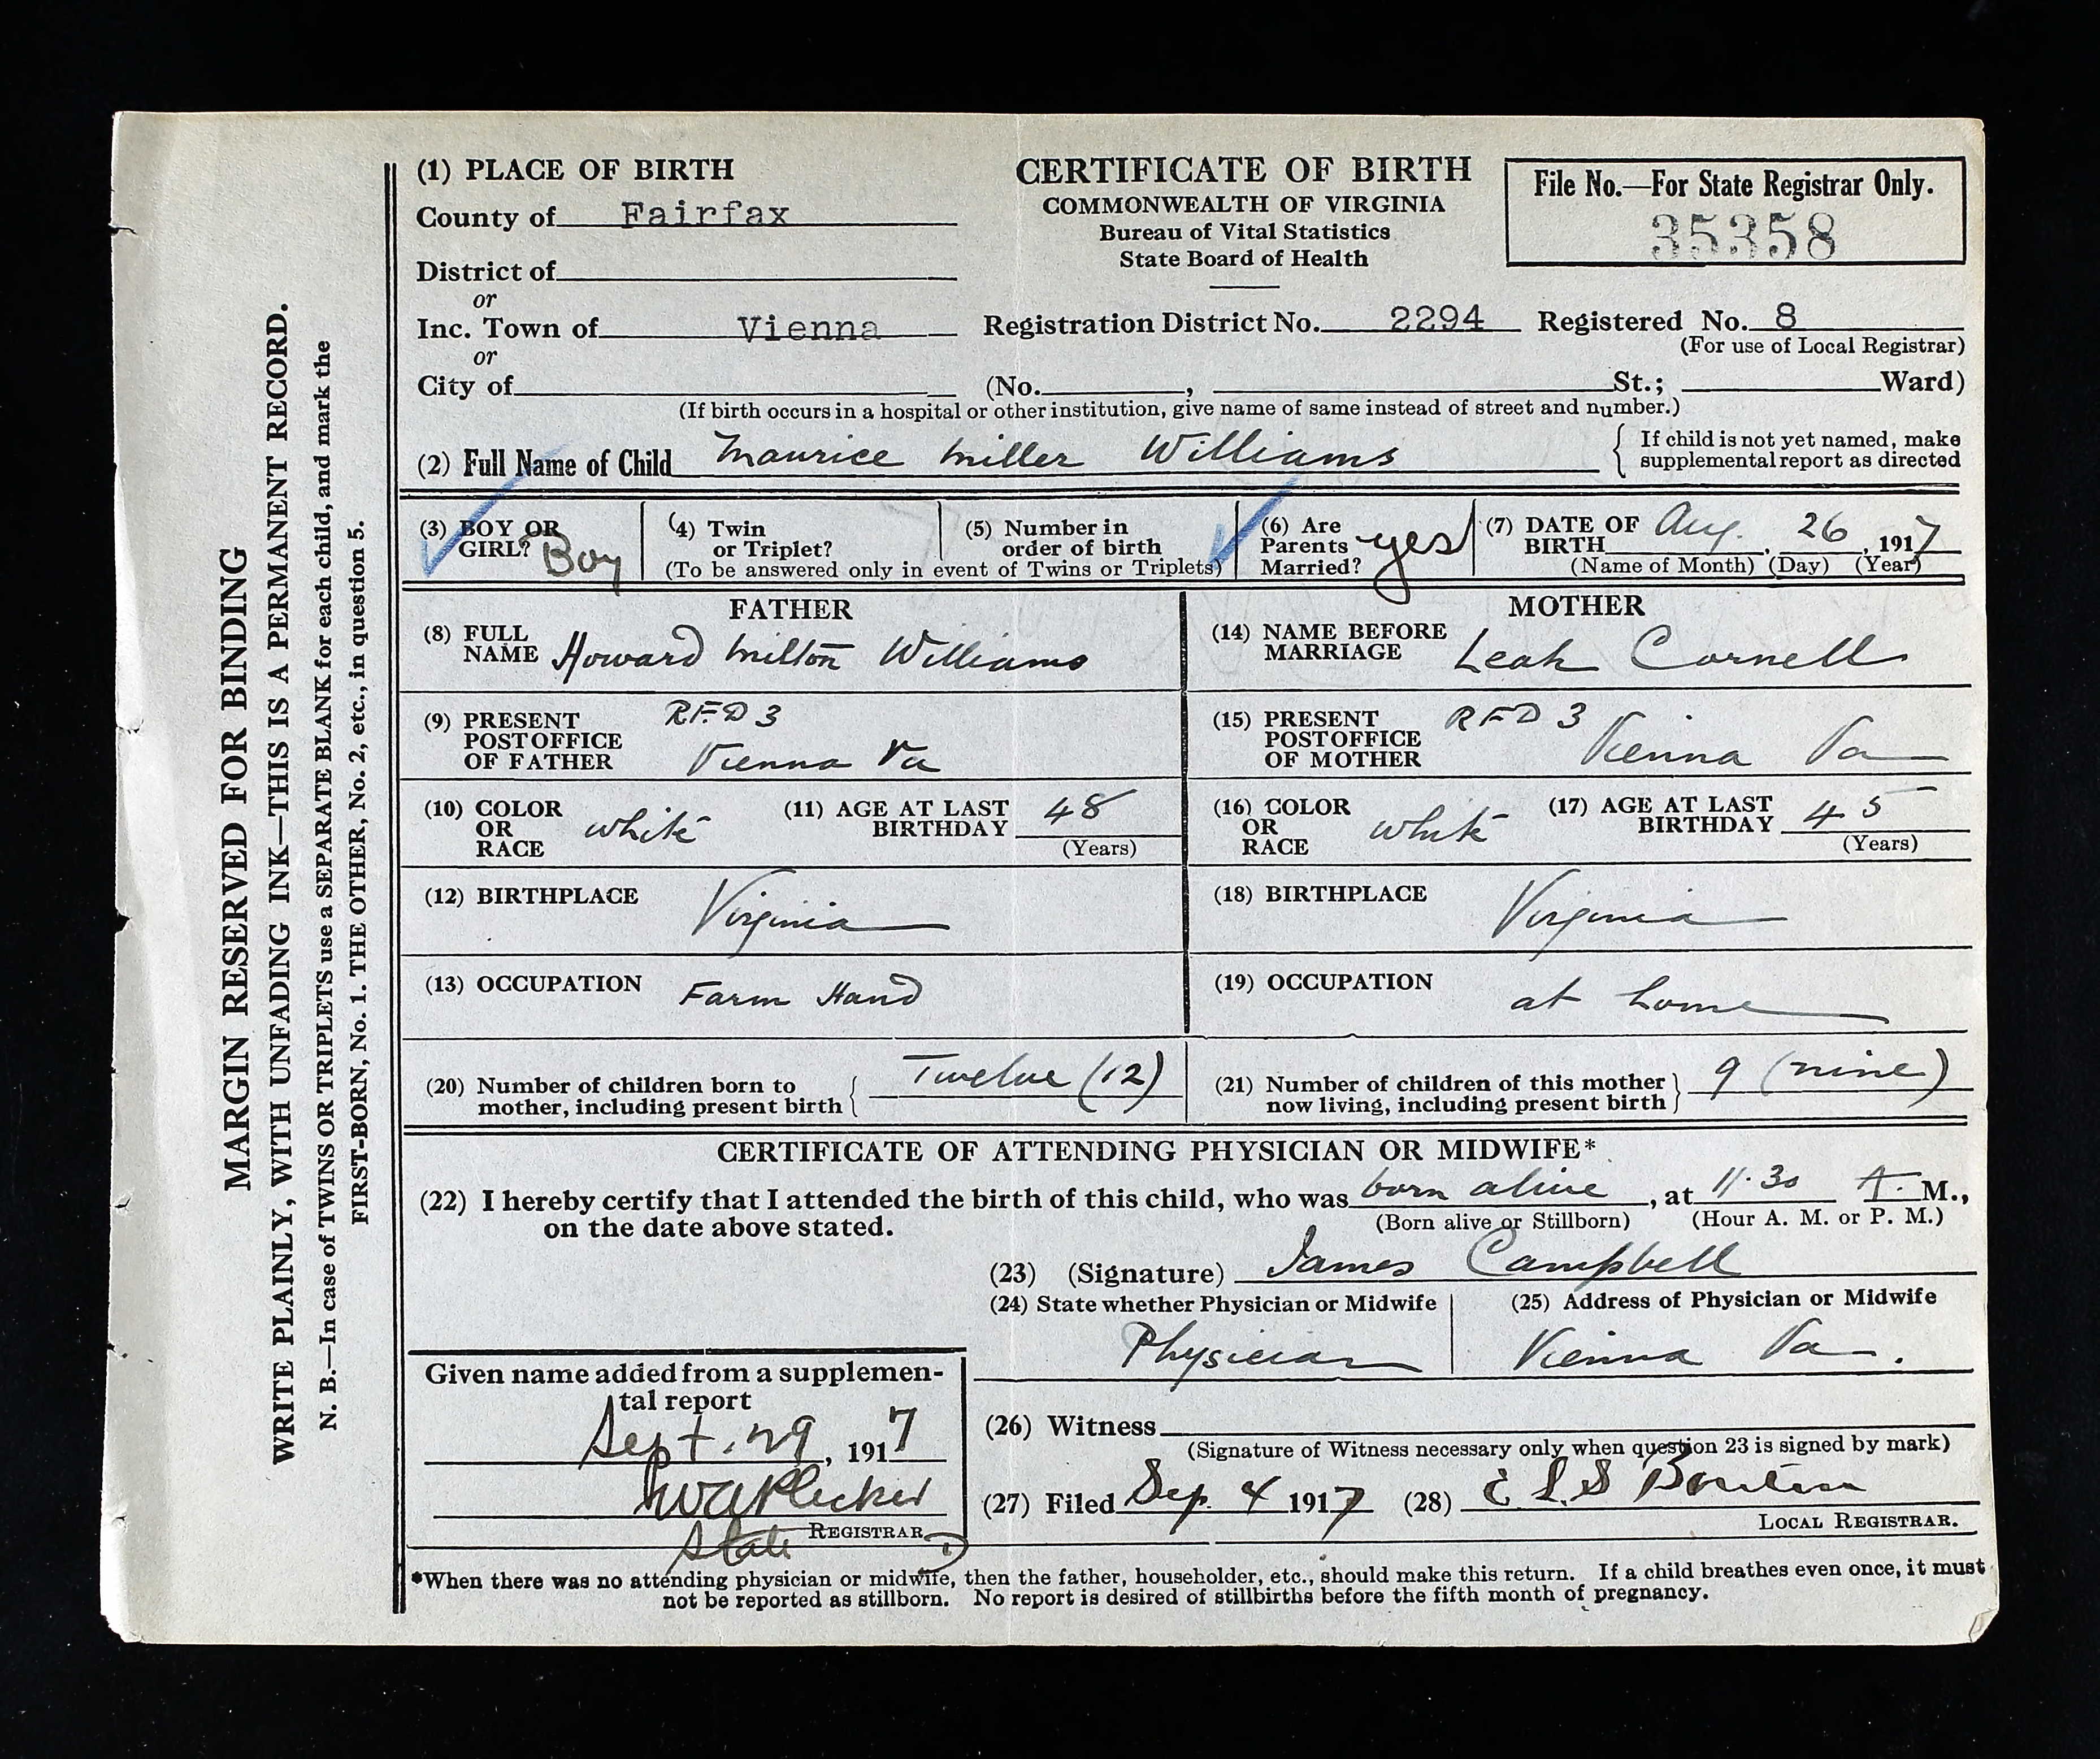 MARGIN RESERVED FOR BINDING
WRITE PLAINLY, WITH UNFADING INK—THIS IS A PERMANENT RECORD.
N. B.—In case of TWINS OR TRIPLETS use a SEPARATE BLANK for each child, and mark the
FIRST-BORN, No. 1. THE OTHER, No. 2, etc., in question 5.
(1) PLACE OF BIRTH
County of Fairfax
District of
or
Inc. Town of Vienna
or
City of
CERTIFICATE OF BIRTH
COMMONWEALTH OF VIRGINIA
Bureau of Vital Statistics
State Board of Health
File No.—For State Registrar Only.
35358
Registration District No. 2294 Registered No. 8
(For use of Local Registrar)
(No. , St.; Ward)
(If birth occurs in a hospital or other institution, give name of same instead of street and number.)
(2) Full Name of Child Maurice Miller Williams
If child is not yet named, make
supplemental report as directed
(3) BOY OR
GIRL? Boy
(4) Twin
or Triplet?
(5) Number in
order of birth
(To be answered only in event of Twins or Triplets)
(6) Are
Parents
Married? yes
(7) DATE OF
BIRTH Aug. 26, 1917
(Name of Month) (Day) (Year)
FATHER
(8) FULL
NAME Howard Milton Williams
(9) PRESENT
POSTOFFICE
OF FATHER
R.F.D 3
Vienna Va
(10) COLOR
OR
RACE white
(11) AGE AT LAST
BIRTHDAY 48
(Years)
(12) BIRTHPLACE Virginia
(13) OCCUPATION Farm Hand
MOTHER
(14) NAME BEFORE
MARRIAGE Leah Cornell
(15) PRESENT
POSTOFFICE
OF MOTHER
RFD 3
Vienna Va
(16) COLOR
OR
RACE white
(17) AGE AT LAST
BIRTHDAY 45
(Years)
(18) BIRTHPLACE Virginia
(19) OCCUPATION at home
(20) Number of children born to
mother, including present birth Twelve (12)
(21) Number of children of this mother
now living, including present birth 9 (nine)
CERTIFICATE OF ATTENDING PHYSICIAN OR MIDWIFE*
(22) I hereby certify that I attended the birth of this child, who was born alive, at 11.30 A. M.,
(Born alive or Stillborn) (Hour A. M. or P. M.)
on the date above stated.
(23) (Signature) James Campbell
(24) State whether Physician or Midwife
Physician
(25) Address of Physician or Midwife
Vienna Va.
Given name added from a supplemen-
tal report
Sept. 29, 1917
W A Plecker
State REGISTRAR
(26) Witness
(Signature of Witness necessary only when question 23 is signed by mark)
(27) Filed Sep. 4 1917 (28) E L S
LOCAL REGISTRAR.
*When there was no attending physician or midwife, then the father, householder, etc., should make this return. If a child breathes even once, it must
not be reported as stillborn. No report is desired of stillbirths before the fifth month of pregnancy.